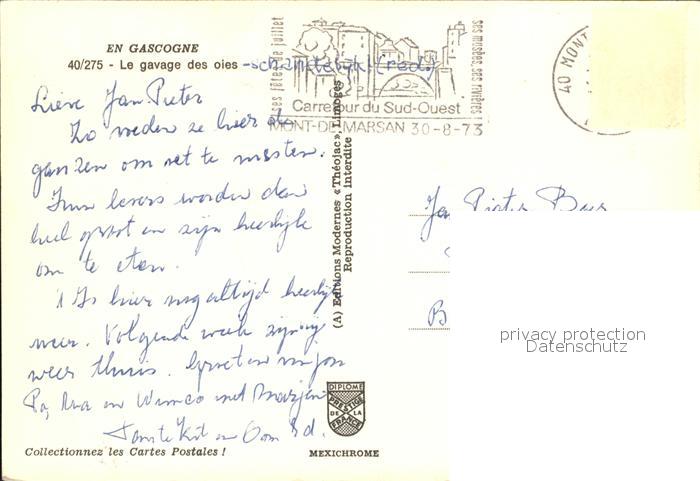 EN GASCOGNE
40/275 - Le gavage des oies - schandelijk! (red.)
ses fêtes de juillet
ses musées, ses rivières
Carrefour du Sud-Ouest
MONT-DE-MARSAN 30-8-73
40 MONT
Lieve Jan Pieter
Zo voeden ze hier de
ganzen om vet te mesten.
Hun levers worden dan
heel groot en zijn heerlijk
om te eten.
't Is hier nog altijd heerlijk
weer. Volgende week zijn wij
weer thuis. Groeten van jou
Pa, Ma en Wimco met Marjan
Tante Kit en Oom Ed.
Jan Pieter
B
(A) Editions Modernes «Théojac», Limoges
Reproduction Interdite
DIPLOME
PRESTIGE
DE LA
FRANCE
Collectionnez les Cartes Postales !
MEXICHROME
privacy protection
Datenschutz